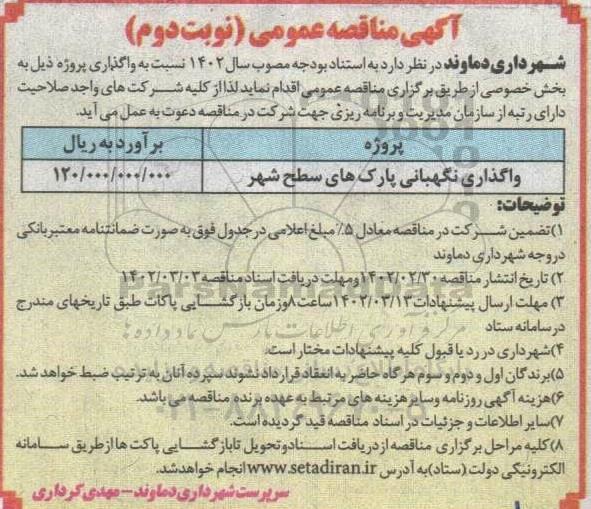 آگهی مناقصه عمومی (نوبت دوم)
شهرداری دماوند در نظر دارد به استناد بودجه مصوب سال ۱۴۰۲ نسبت به واگذاری پروژه ذیل به
بخش خصوصی از طریق برگزاری مناقصه عمومی اقدام نماید لذا از کلیه شرکت های واجد صلاحیت
دارای رتبه از سازمان مدیریت و برنامه ریزی جهت شرکت در مناقصه دعوت به عمل می آید.
پروژه برآورد به ریال
واگذاری نگهبانی پارک های سطح شهر ۱۲۰/۰۰۰/۰۰۰/۰۰۰
توضیحات:
۱)تضمین شرکت در مناقصه معادل ۵٪ مبلغ اعلامی در جدول فوق به صورت ضمانتنامه معتبر بانکی
در وجه شهرداری دماوند
۲) تاریخ انتشار مناقصه ۱۴۰۲/۰۲/۳۰ و مهلت دریافت اسناد مناقصه ۱۴۰۲/۰۳/۰۳
۳) مهلت ارسال پیشنهادات ۱۴۰۲/۰۳/۱۳ ساعت ۸ وزمان بازگشایی پاکات طبق تاریخهای مندرج
در سامانه ستاد
۴)شهرداری در رد یا قبول کلیه پیشنهادات مختار است.
۵)برندگان اول و دوم و سوم هرگاه حاضر به انعقاد قرارداد نشوند سپرده آنان به ترتیب ضبط خواهد شد.
۶)هزینه آگهی روزنامه وسایر هزینه های مرتبط به عهده برنده مناقصه می باشد.
۷)سایر اطلاعات و جزئیات در اسناد مناقصه قید گردیده است.
۸)کلیه مراحل برگزاری مناقصه از دریافت اسناد و تحویل تا بازگشایی پاکت ها از طریق سامانه
الکترونیکی دولت (ستاد) به آدرس www.setadiran.ir انجام خواهد شد.
سرپرست شهرداری دماوند - مهدی کرداری